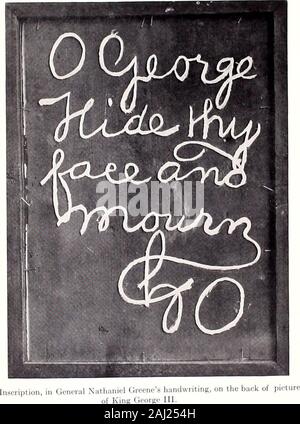 O George
Hide thy
face and
mourn
alamy
Inscription, in General Nathaniel Greene's handwriting, on the back of picture
of King George III.
alamy - 2AJ254H